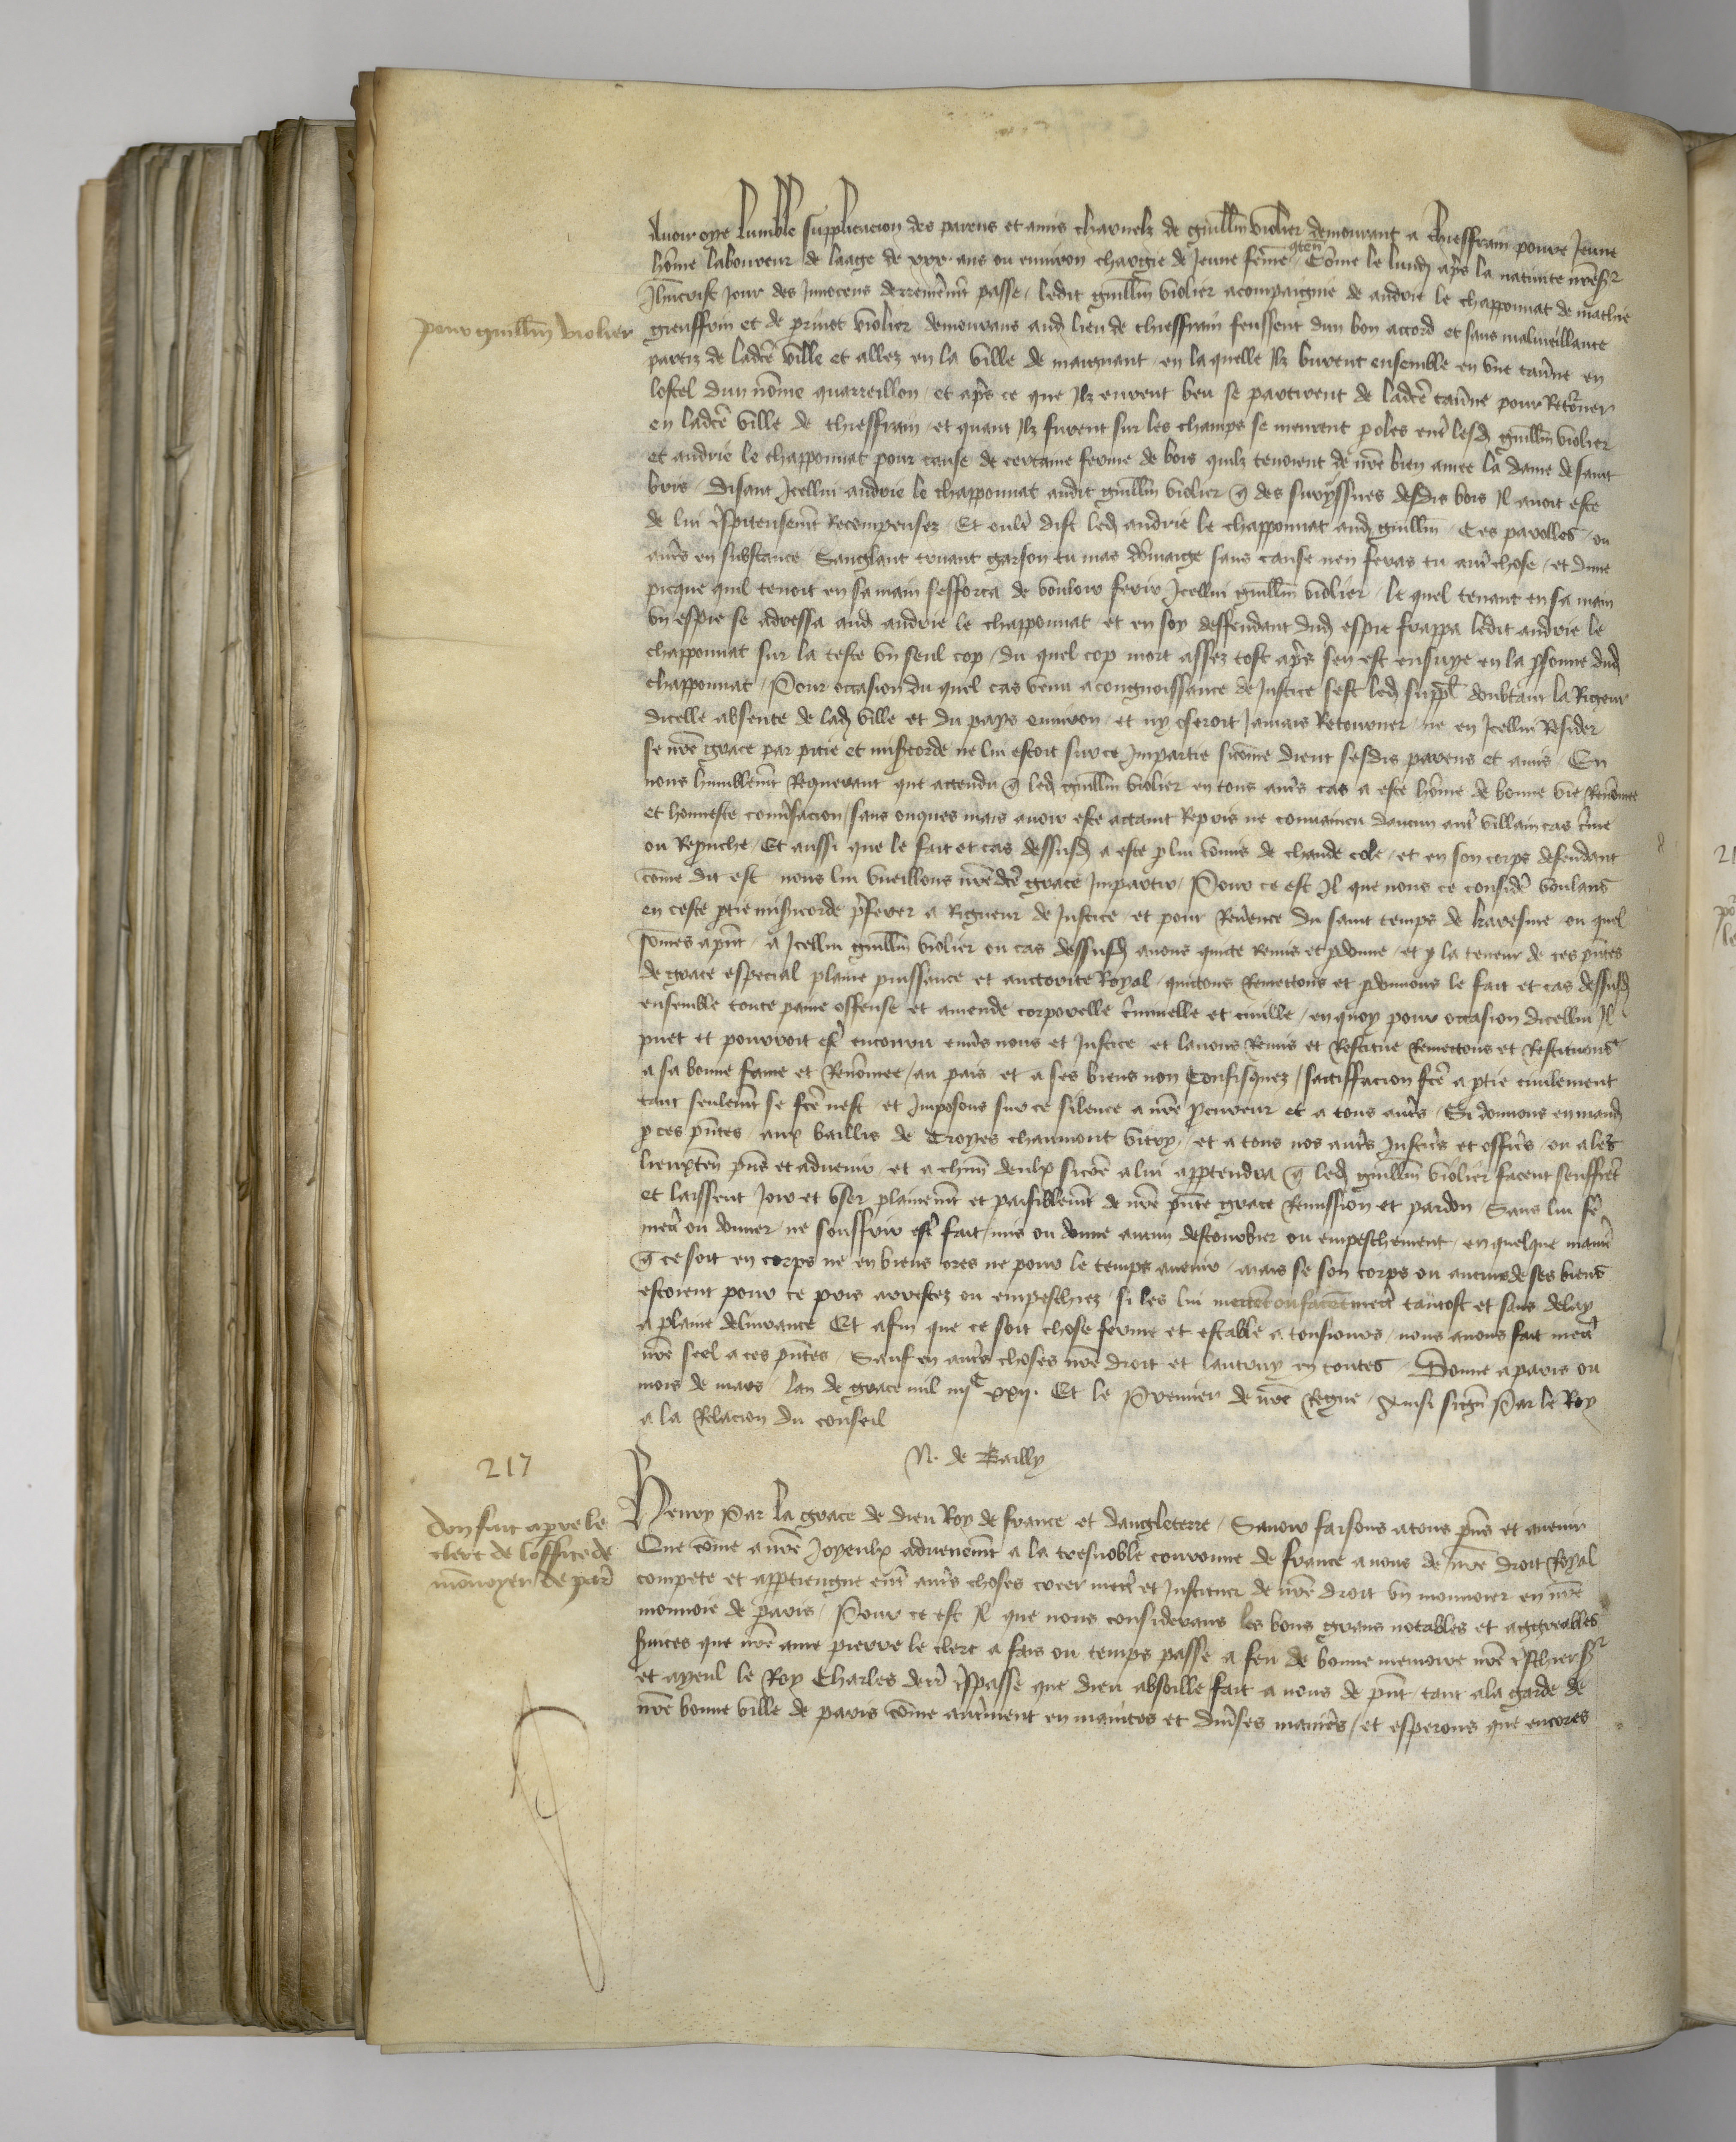 Avoir oye lumble supplicacion des parens et amis charnelz de guillm̄ violier demourant a thieffrain povre Jeune
hōme laboureur de laage de xxx. ans ou environ chargie de Jeune fēme Cōme le lundi apr̄s la nativite nr̄e s
Jhūcrist Jour des Innocens derrenierem̄t passe / ledit guillm̄ violier acompaignie de andrie le chapponnat de mathie
pour guillm̄ violier
gieuffrin et de prinet violier demourans aud lieu de thieffrain feussent dun bon accord et sans malveillance
partiz de ladc̄e ville et allez en la ville de maignant / en la quelle Ilz burent ensemble en une tav̄ne en
lostel dun nōme quarreillon / et apr̄s ce que Ilz eurent beu se partirent de ladc̄e tav̄ne pour Ret̄oner
en ladc̄e ville de thieffrain / et quant Ilz furent sur les champs se meurent p̄oles ent̄ lesd guillm̄ violier
et andrie le chapponnat pour cause de certaine ferme de bois quilz tenoient de nr̄e bien amee la dame de saint
bris / disant Icellui andrie le chapponnat audit guillm̄ violier q̄ des desdis bois Il avoit este
de lui Recompensez / Et oult̄ dist led andrie le chapponnat aud guillm̄ / Ces parolles / ou
aut̄s en substance Sanglant truant garson tu mas dōmaige sans cause nen feras tu aut̄ chose / et dune
picque quil tenoit en sa main sefforca de vouloir ferir Icellui guillm̄ violier / le quel tenant en sa main
un espie se adressa aud andrie le chapponnat / et en soy deffendant dud espie frappa ledit andrie le
chapponnat sur la teste un seul cop / du quel cop mort assez tost apr̄s sen est ensuye en la p̄sonne dud
chapponnat / Pour occasion du quel cas venu a congnoissance de Justice sest led suppl̄ doubtant la Rigeur
dicelle absente de lad ville et du pays environ / et ny oseroit Jamais Retourner / ne en Icellui Resider
se nr̄e grace par pitie et mis̄icorde ne lui estoit sur ce Impartie sicōme dient sesdis parens et amis / En
nous humblem̄t Requerant que attendu q̄ led guillm̄ violier en tous aut̄s cas a este hōme de bonne vie Renōmee
et honneste conv̄sacion / sans onques mais avoir este actaint Repris ne convaincu daucun aut̄ villain cas c̄me
ou Rep̄uche / Et aussi que le fait et cas dessusd a este p̄ lui cōmis de chaude cole / et en son corps defendant
cōme dit est / nous lui vueillons nr̄edc̄e grace Impartir / Pour ce est Il que nous ce consider̄ voulans
en ceste p̄tie mis̄icorde p̄ferer a Rigueur de Justice / et pour Rev̄ence du saint temps de karesme / ou quel
sōmes ap̄nt / a Icellui guillm̄ violier ou cas dessusd avons quicte Remis et p̄donne / et p̄ la teneur de ces p̄ntes
de grace especial plaine puissance et auctorite Royal / quictons Remettons et p̄donnons le fait et cas dessusd
ensemble toute paine offense et amende corporelle c̄minelle et civille / en quoy pour occasion dicellui Il
puet et pourroit est̄ encouru env̄s nous et Justice et lavons Remis et Restitue Remettons et Restituons
a sa bonne fame et Renōmee / au pais / et a ses biens non Confisquez / satiffacion fc̄e a p̄tie civilement
tant seulem̄t se fc̄e nest / et Imposons sur ce silence a nr̄e p̄cureur et a tous aut̄s / Si donnons en mand
p̄ ces p̄ntes / aux baillis de Troyes chaumont vitry / et a tous nos aut̄s Justic̄s et offic̄s / ou a le
lieuxten̄ p̄ns et advenir / et a chūn deulx sicōe a lui app̄tendra q̄ led guillm̄ violier facent seuffr̄et
et laissent Joir et user plainem̄t et paisiblem̄t de nr̄e p̄nte grace Remission et pardon / Sans lui f̄e
mett̄ ou donner / ne souffrir est̄ fait / mis ou donne aucun destourbier ou empeschement / en quelque manie
q̄ ce soit en corps ne en biens ores ne pour le temps avenir / mais se son corps ou aucuns de ses biens
estoient pour ce pris arrestez ou empeschiez / si les lui mectēt ou facēt mett̄ tantost et sans delay
a plaine delivrance Et afin que ce soit chose ferme et estable a tousiours / nous avons fait mett̄
nr̄e seel a ces p̄ntes / Sauf en aut̄s choses nr̄e droit et lautruy en toutes / Donne a paris ou
mois de mars / lan de grace mil iiij C xxij. Et le Premier de nr̄e Regne / Ainsi sign̄ Par le Roy
a la Relacion du conseil
N. de Bailly
217
Don fait a p̄re le
clerc de loffice de
mōnoyer de par̄
Henry Par la grace de dieu Roy de france et dangleterre / Savoir faisons a tous p̄ns et avenir
Que cōme a nr̄e Joyeulx advenem̄t a la tresnoble couronne de france a nous de nr̄e droit Royal
compete et app̄tiengne ent̄ aut̄s choses creer mett̄ et Instituer de nr̄e droit un monnoier en nr̄e
monnoie de paris / Pour ce est Il que nous considerans les bons grans notables et aggreables
s̄vices que nr̄e ame pierre le clerc a fais ou temps passe a feu de bonne memoire nr̄e t̄schier s
et ayeul le Roy Charles derr̄ t̄spasse que dieu absoille / fait a nous de p̄nt / tant a la garde de
nr̄e bonne ville de paris cōme aut̄ment en maintes et div̄ses manier̄s / et esperons que encores